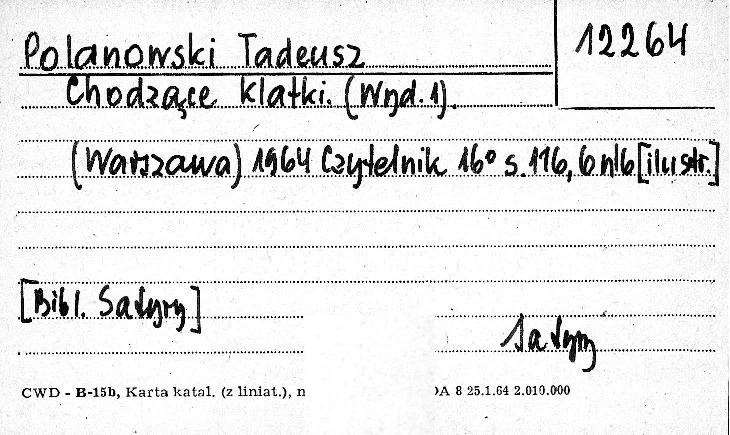 12264
Polanowski Tadeusz
Chodzące klatki. (Wyd. 1).
(Warszawa) 1964 Czytelnik 16° s. 116, 6 nlb [ilustr.]
[Bibl. Satyry]
Satyry
CWD - B-15b, Karta katal. (z liniat.), n
A 8 25.1.64 2.010.000